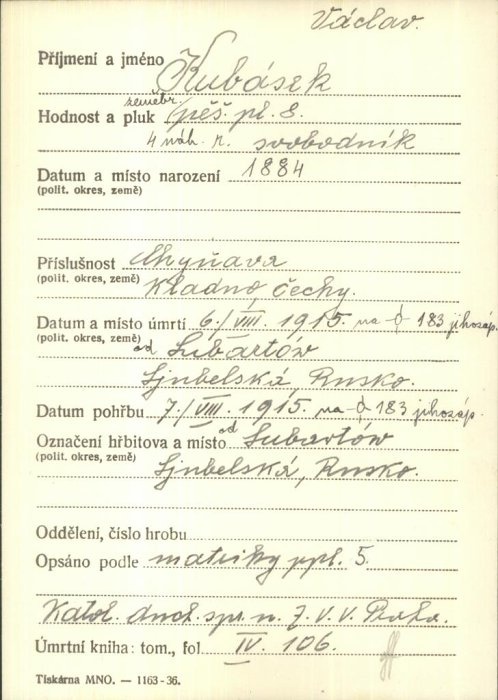 Václav.
Příjmení a jméno Kubásek
Hodnost a pluk zeměbr. pěš. pl. 8.
4 náh. r. svobodník
Datum a místo narození 1884
(polit. okres, země)
Příslušnost Chyňava
(polit. okres, země) Kladno, Čechy.
Datum a místo úmrtí 6./VIII. 1915. na 183 jihozáp.
(polit. okres, země) od Lubartów
Ljubelská, Rusko.
Datum pohřbu 7./VIII. 1915. na 183 jihozáp.
Označení hřbitova a místo od Lubartów
(polit. okres, země) Ljubelská, Rusko.
Oddělení, číslo hrobu
Opsáno podle matriky ppl. 5.
Katol. duch. spr. n. Z. V. V. Praha.
Úmrtní kniha: tom., fol IV. 106.
Tiskárna MNO. — 1163-36.